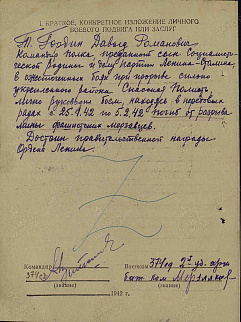 I. КРАТКОЕ, КОНКРЕТНОЕ ИЗЛОЖЕНИЕ ЛИЧНОГО
БОЕВОГО ПОДВИГА ИЛИ ЗАСЛУГ
Т. Гордин Давыд Романович
Командир полка преданный сын Социалисти-
ческой Родины и делу партии Ленина-Сталина,
в ожесточенных боях при прорыве сильно
укрепленного района Спасская Полисть
Лично руководил боем, находясь в передовых
рядах с 25.1.42 по 5.2.42 погиб от разрыва
мины фашистских мерзавцев.
Достоин правительственной награды
Ордена Ленина.
Командир
374сд
Военком 374сд 2й уд. армии
бат. ком. Мерзляков
(звание)
(звание)
1942 г.